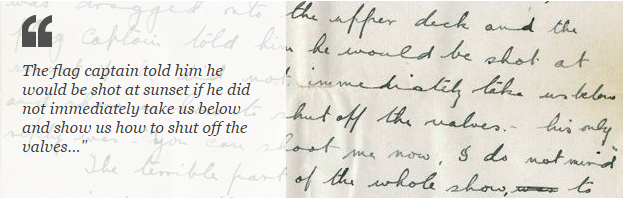 “
The flag captain told him he
would be shot at sunset if he did
not immediately take us below
and show us how to shut off the
valves..."
was dragged onto the upper deck and the
flag Captain told him he would be shot at
not immediately take us below
to shut off the valves.- his only
you can shoot me now, I do not mind
The terrible part of the whole show, was to